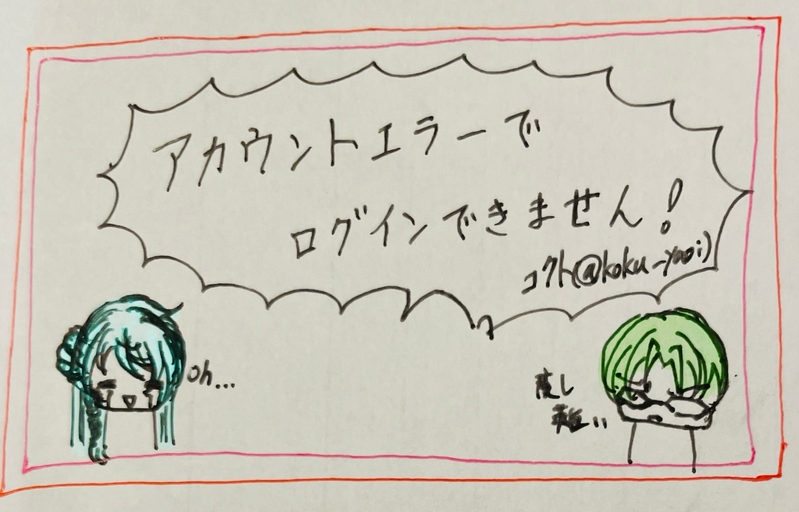 アカウントエラーで
ログインできません!
コクト(@koku-yaoi)
oh...
度し
難い